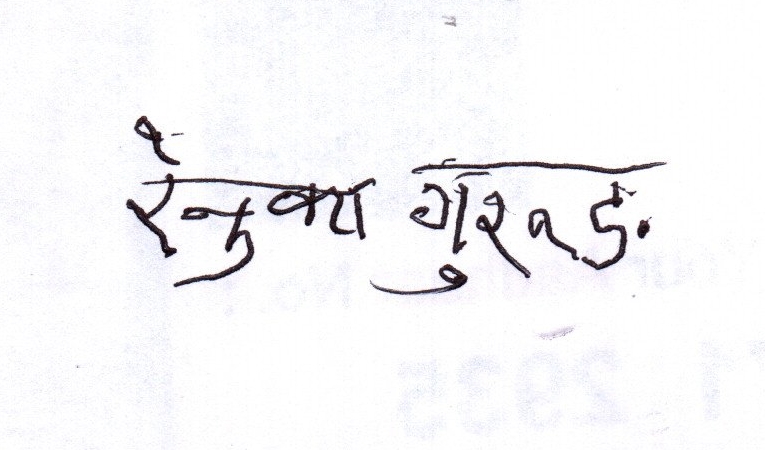 रेनुका गुरुङ